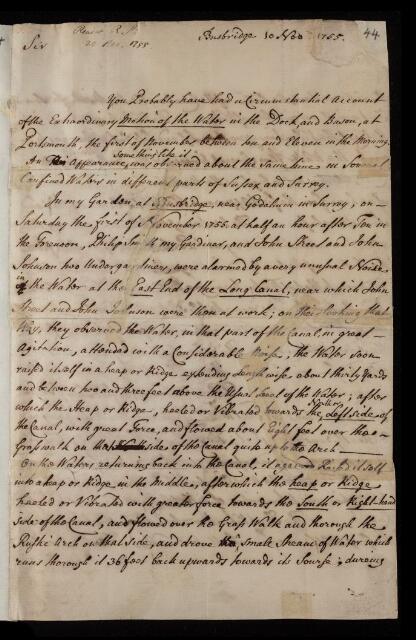 44
Read R.S.
20 Nov. 1755
Busbridge 10 Nov. 1755.
Sir
You Probably have had a Circumstantial Account
of the Extraordinary Motion of the Water in the Dock and Bason, at
Portsmouth, the first of November between ten and Eleven in the Morning.
Something like it
An Appearance, was observed about the Same time in Several
Confined Waters in different parts of Sussex and Surrey.
In my Garden at Busbridge, near Godalmin in Surrey; on
Saturday the first of November 1755. at half an hour after Ten in
the Forenoon, Philip Smith my Gardiner, and John Street and John
Johnson two Undergardiners, were alarmed by a very unusual Noise
in the Water at the East End of the Long Canal, near which John
Street and John Johnson were then at work; on their looking that
Way, they observed the Water, in that part of the Canal, in great
Agitation, attended with a Considerable Noise, the Water soon
raised itself in a heap or Ridge extending Length wise about thirty Yards
and between two and three feet above the Usual Level of the Water; after
which the Heap or Ridge, heeled or Vibrated towards the Left side of
the Canal, with great Force, and flowed about Eight feet over the
Grass walk on that side of the Canal quite up to the Arch
On the Waters returning back into the Canal, it again raised it self
into a heap or Ridge in the Middle, after which the heap or Ridge
heeled or Vibrated with greater force towards the South or Right-hand
Side of the Canal, and flowed over the Grass Walk and thorough the
Rustic Arch on that side, and drove the small Stream of Water which
runs thorough it 36 feet back upwards towards its Sourse; during